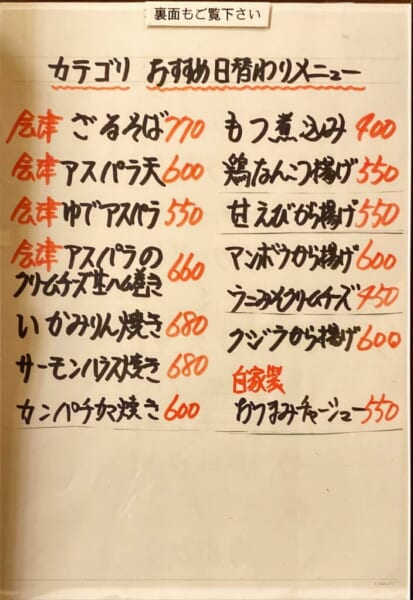 裏面もご覧下さい
カテゴリ おすすめ日替わりメニュー
会津 ざるそば 770
会津 アスパラ天 600
会津 ゆでアスパラ 550
会津 アスパラの
クリームチーズ生ハム巻き 660
いかみりん焼き 680
サーモンハラス焼き 680
カンパチカマ焼き 600
もつ煮込み 400
鶏なんこつ揚げ 550
甘えびから揚げ 550
アンボウから揚げ 600
ウニみそクリームチーズ 450
クジラから揚げ 600
自家製
おつまみチャーシュー 550